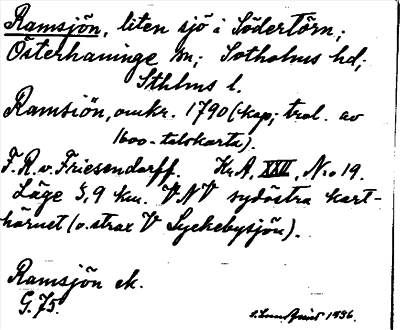 Ramsjön, liten sjö i Södertörn;
Österhaninge sn; Sotholms hd;
Sthlms l.
Ramsiön, omkr. 1790 (kop; trol. av
1600-talskarta).
F. R. v. Friesendorff. Kr A. XXII, N:o 19.
Läge 3,9 km. V.NV sydöstra kart-
hörnet (o. strax V Lyckebysjön).
Ramsjön ek.
G. 75.
1936.